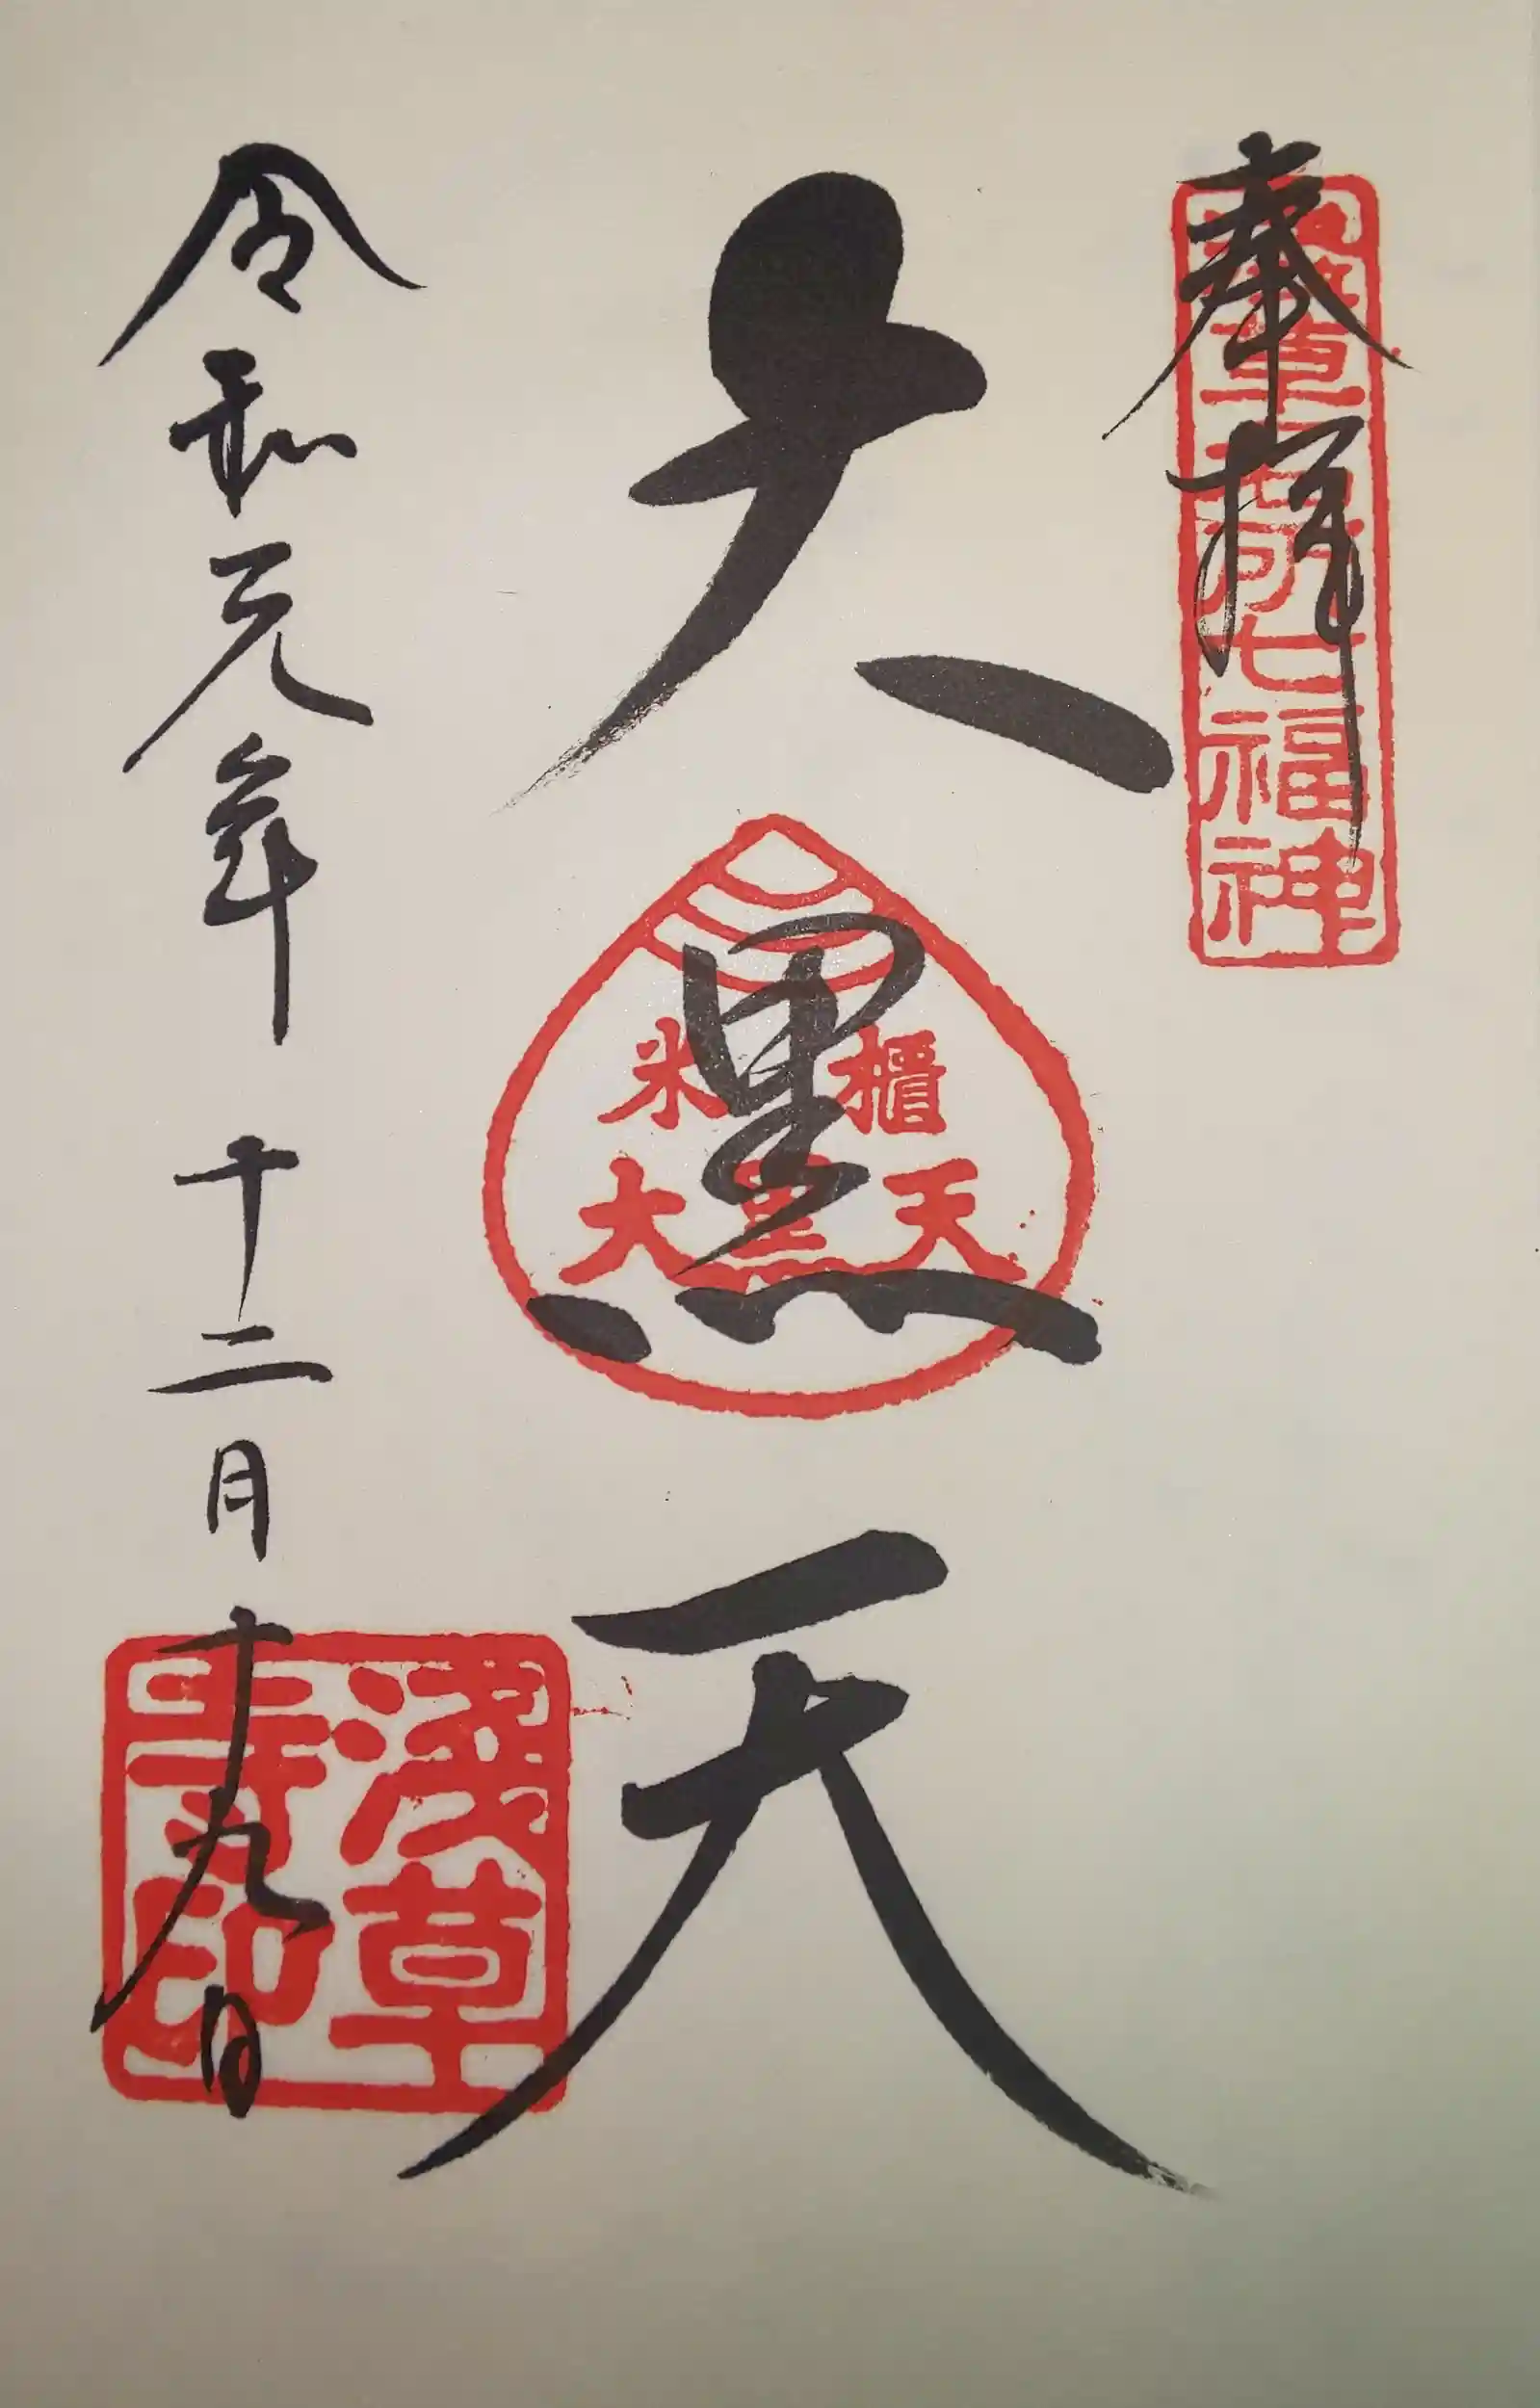 奉拝
浅草名所七福神
大黒天
米櫃
大黒天
令和元年十二月十九日
淺草
寺印